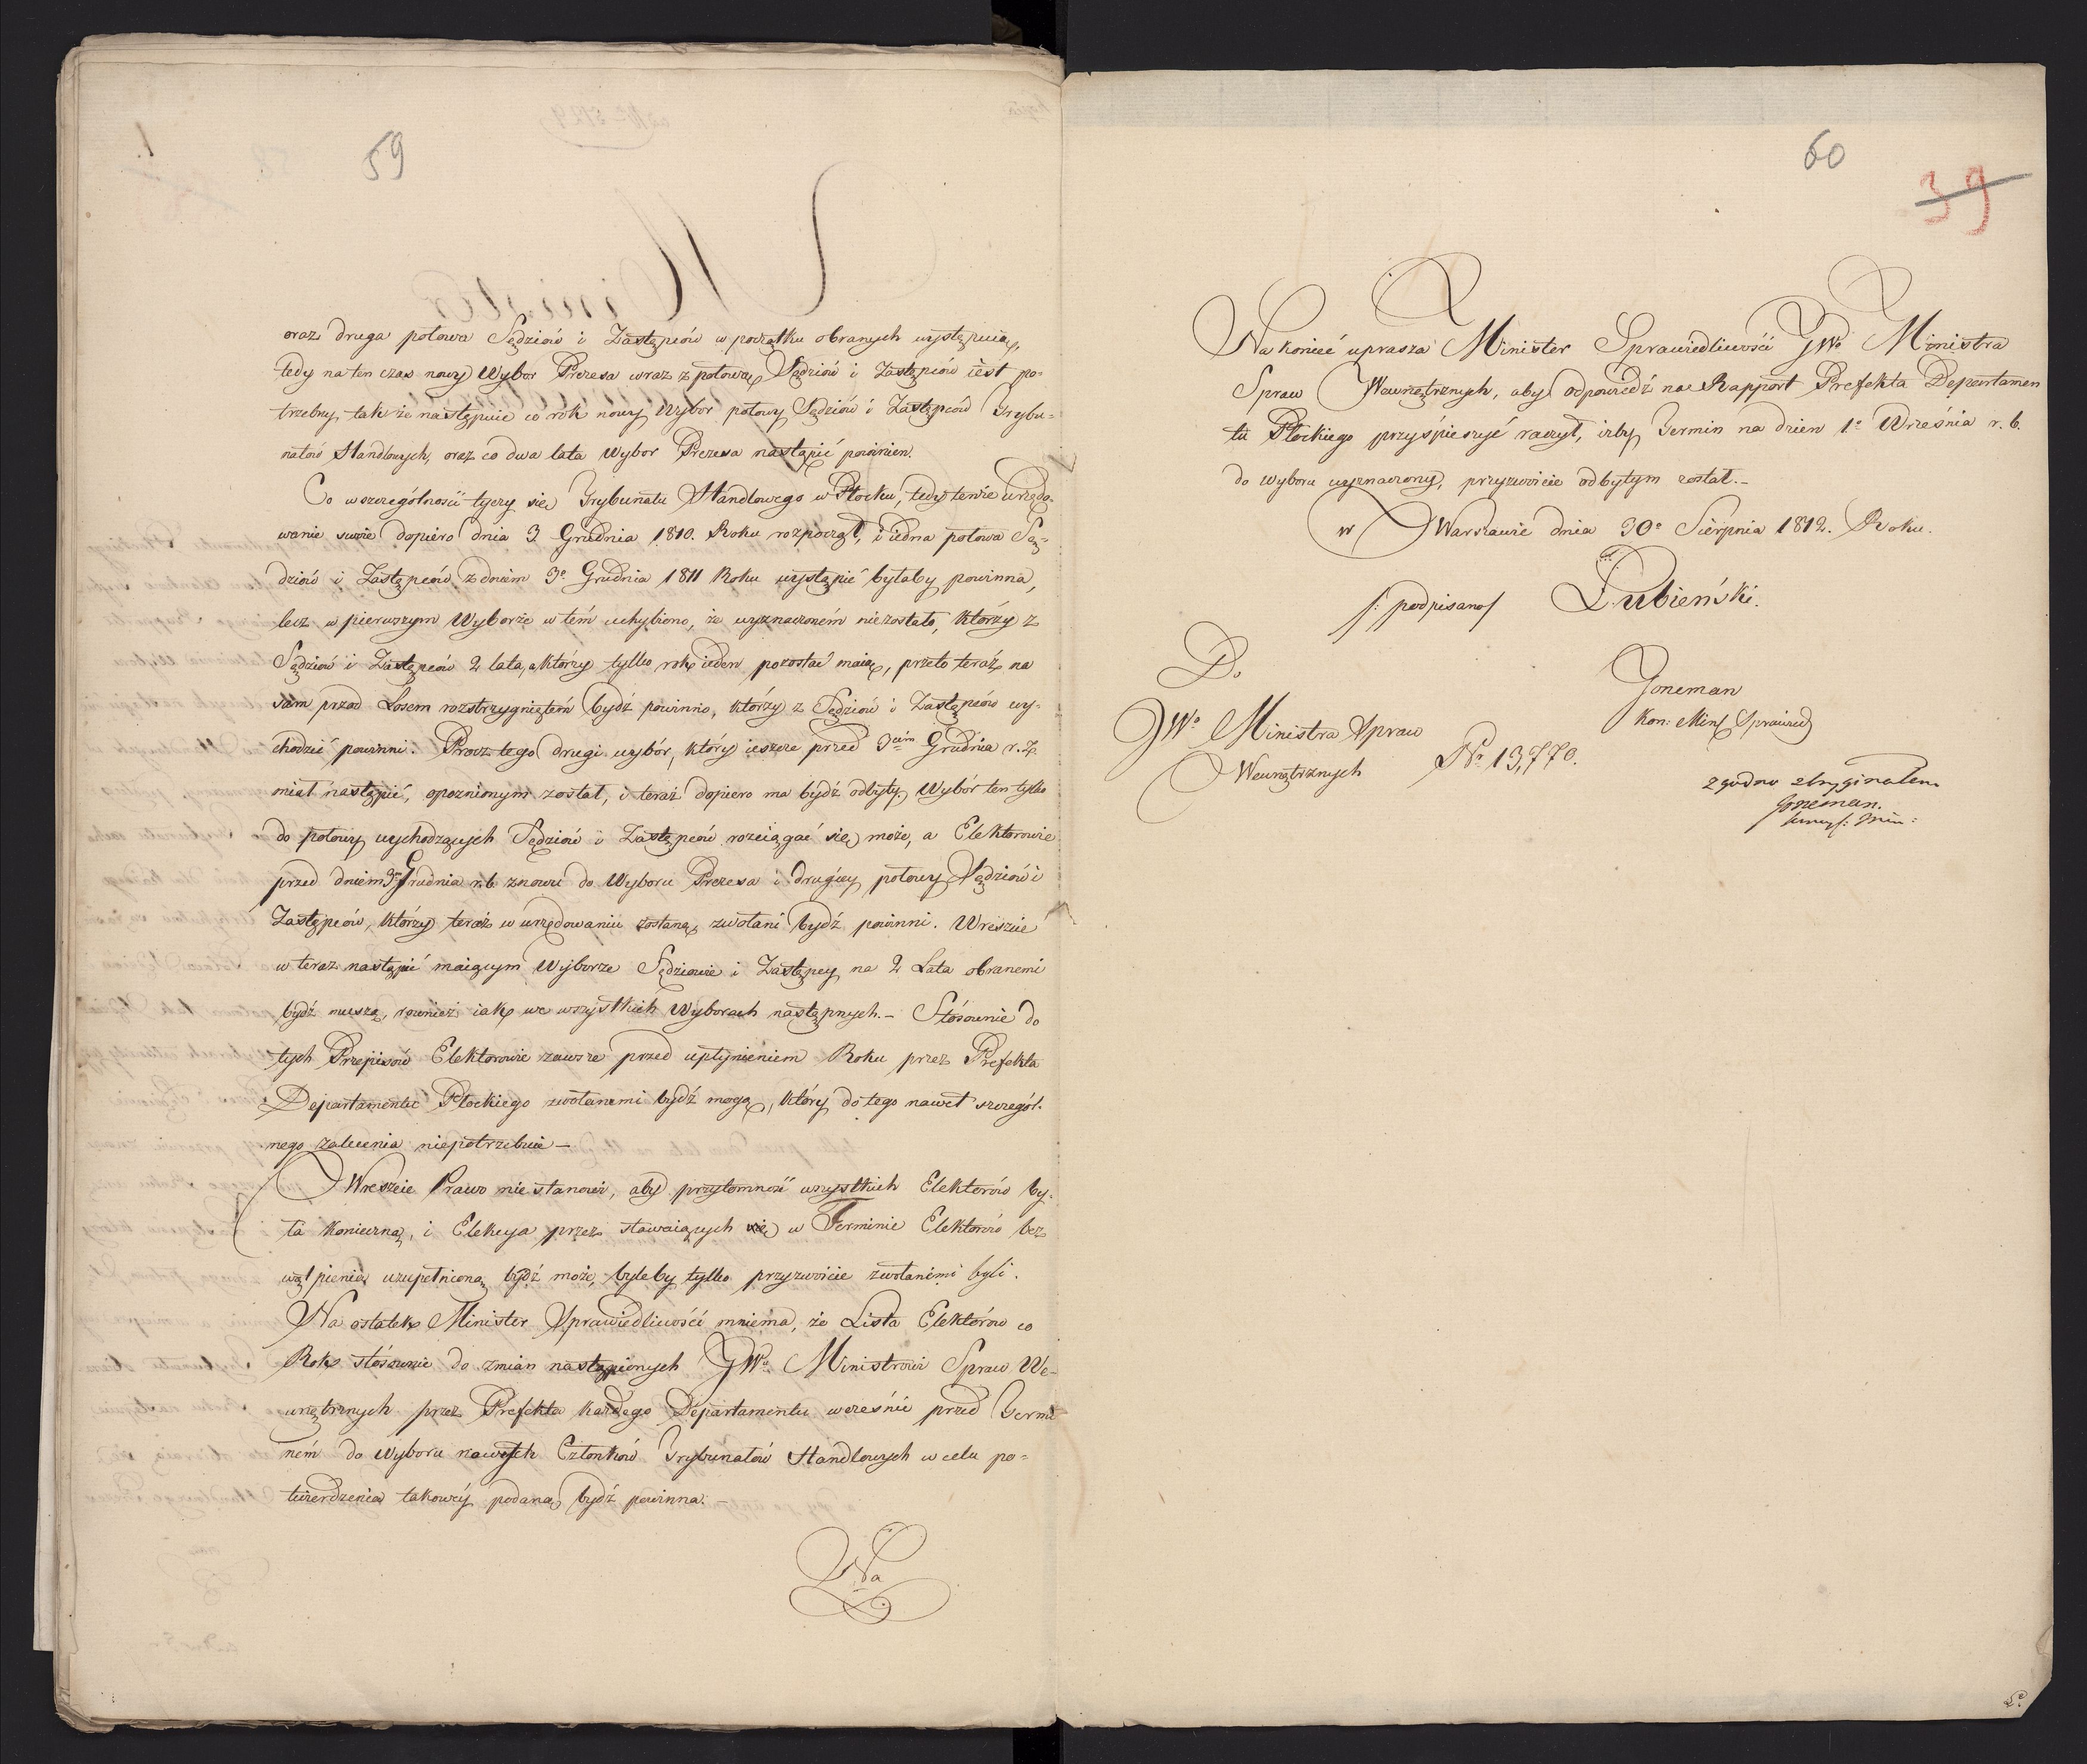 59
oraz druga połowa Sędziów i Zastępców w początku obranych występuią,
tedy na ten czas nowy Wybor Prezesa wraz z połową Sędziów i Zastępców iest po-
trzebny, tak że nastąpuie co rok nowy Wybor połowy Sędziów i Zastępców Trybu-
nałów Handlowych, oraz co dwa lata Wybor Prezesa nastąpić powinien.
Co w szczególności tyczy się Trybunału Handlowego w Płocku, tedy tenże urzędo-
wanie swoie dopiero dnia 3 Grudnia 1810. Roku rozpoczął, i iedna połowa Sę-
dziów i Zastępców z dniem 3o Grudnia 1811 Roku wystąpić byłaby powinna,
lecz w pierwszym Wyborze w tém uchybiono, że wyznaczoném niezostało, którzy z
Sędziów i Zastępców 2 lata, a którzy tylko rok ieden pozostać maią, przeto teraz na
sam przod Losem rozstrzygniętém bydź powinno, którzy z Sędziów i Zastępców wy-
chodzić powinni. Procz tego drugi wybór, który ieszcze przed 3cim Grudnia r. z.
miał nastąpić, opoznionym został, i teraz dopiero ma bydź odbyty. Wybór ten tylko
do połowy wychodzących Sędziów i Zastępców rozciągać się może, a Elektorowie
przed dniem 3m Grudnia r. b. znowu do Wyboru Prezesa i drugiey połowy Sędziów i
Zastępców, którzy teraz w urzędowaniu zostaną, zwołani bydź powinni. Wreszcie
w teraz nastąpić maiącym Wyborze Sędziowie i Zastępcy na 2 Lata obranemi
bydź muszą, rownież iak we wszystkich Wyborach następnych.- Stósownie do
tych Przepisów Elektorowie zawsze przed upłynieniem Roku przez Prefekta
Departamentu Płockiego zwołanemi bydź mogą, który do tego nawet szczegól-
nego zalecenia niepotrzebuie -
Wreszcie Prawo niestanowi, aby przytomność wszystkich Elektorów by-
ła konieczną, i Elekcya przez stawaiących się w Terminie Elektorów bez
wątpienia uzupełnioną bydź może, byleby tylko przyzwoicie zwołanimi byli.
Na ostatek Minister Sprawiedliwości mniema, że Lista Elektorów co
Rok stósownie do zmian nastąpionych JWu Ministrowi Spraw We-
wnętrznych przez Prefekta każdego Departamentu wcześnie przed Termi-
ném do Wyboru nowych Członków Trybunałów Handlowych w celu po-
twierdzenia takowéy podaną bydź powinna.-
Na
60
39
Na koniec uprasza Minister Sprawiedliwości JWo Ministra
Spraw Wewnętrznych, aby odpowiedź na Rapport Prefekta Departamen
tu Płockiego przyśpieszyć raczył, iżby Termin na dzien 1o Września r. b.
do wyboru wyznaczony, przyzwoicie odbytym został.-
w Warszawie dnia 30o Sierpnia 1812. Roku.
/: podpisano/ Łubieński.
Do
JWo Ministra Spraw
Wewnętrznych
No 13,770.
Joneman
Kon: Min: Sprawied
zgodno z Oryginałem
Joneman.